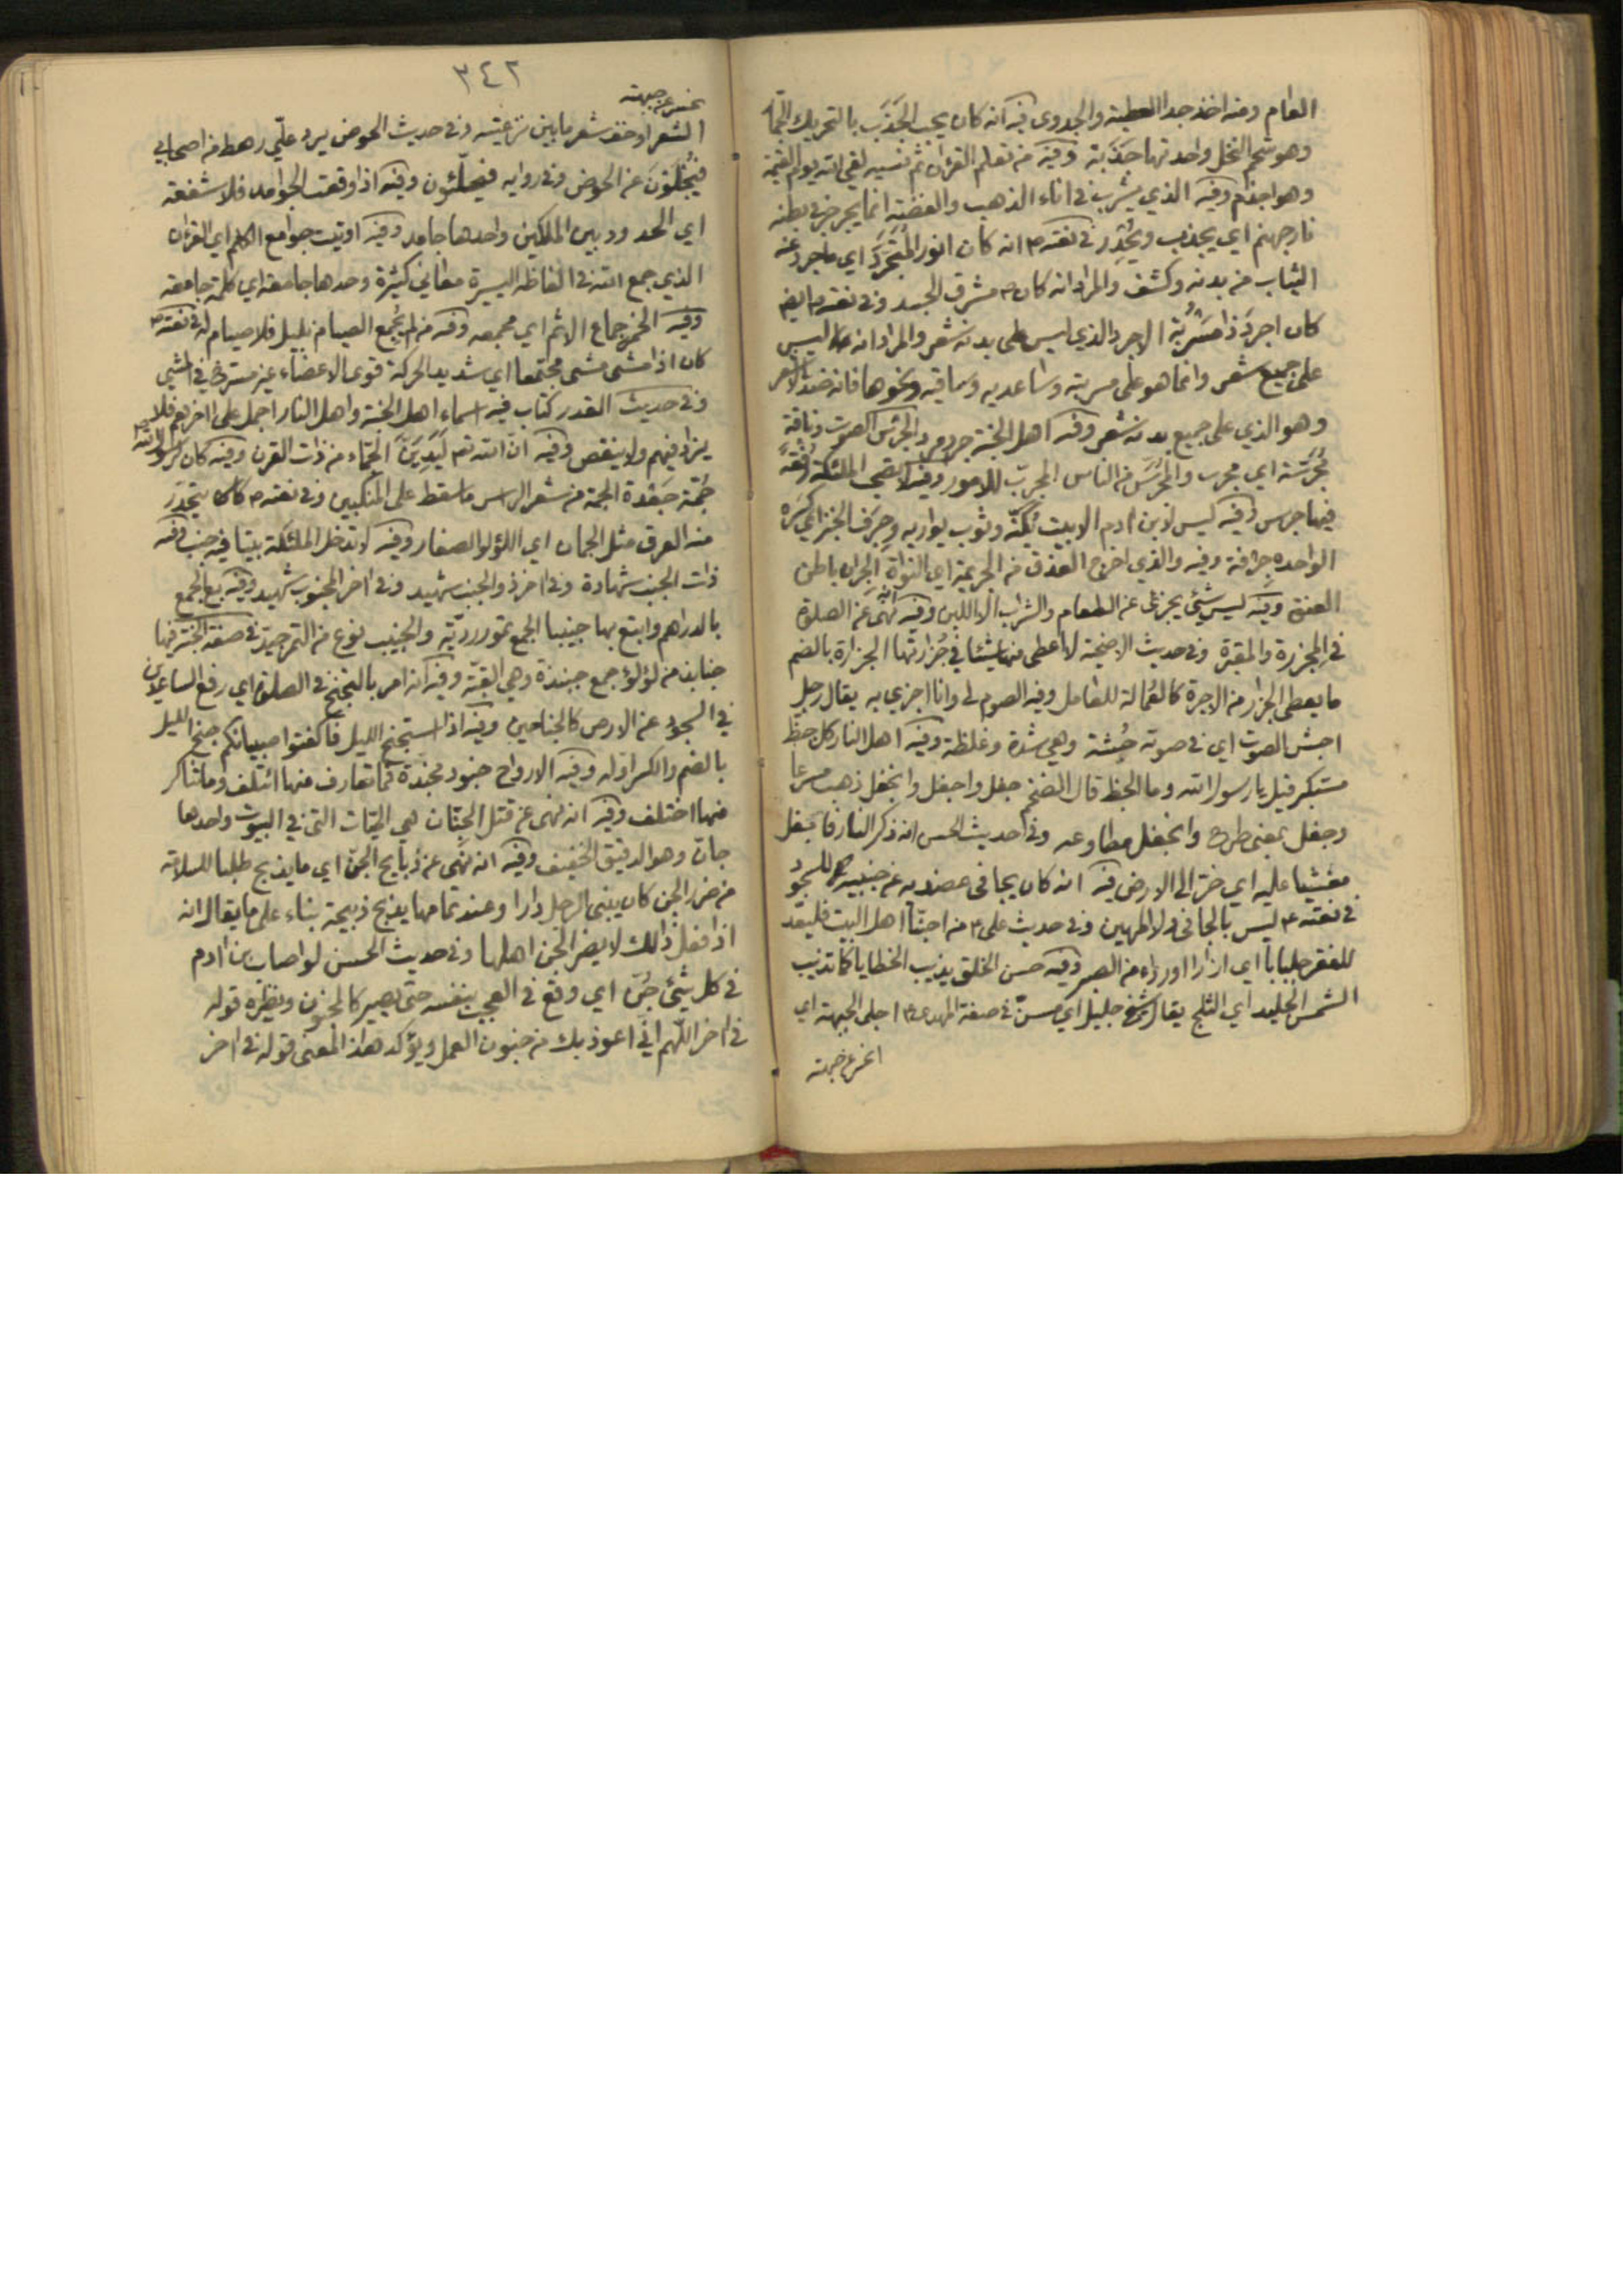 العام ومنه اخذ جدا العطية والجدوى فيه انه كان يحب الجَذَب بالتحريك الجمّار
وهو شحم النخل واحدتها جَذَبة وفيه من تعلم القرءان ثم نسيه لقى الله يوم القيمة
وهو اجذم وفيه الذي يشرب في اناء الذهب والفضة انما يجرجر في بطنه
نار جهنم اي يجذب ويحدر في نعته ص انه كان انور المُتَجَرَّد اي ما جرد عنه
الثياب من بدنه وكشف والمراد انه كان ص مشرق الجسد وفي نعته ص ايضا
كان اجرد ذا مَسْرُبة الاجرد الذي ليس على بدنه شعر والمراد انه ليس
على جميع شعر وانما هو على مسربته وساعديه وساقيه ونحوها فانه ضد الاشعر
وهو الذي على جميع بدنه شعر وفيه اهل الجنة جرد والجرس الصوت وناقة
مُجَرَّسة اي مجرب والمُجَرَّس من الناس المجرب للامور وفيه لا تصحب الملئكة رفقة
فيها جرس وفيه ليس لابن ادم الا بيت يُكِنّه وثوب يواريه وجِرَف الخبز اي كسره
الواحده جرافة وفيه والذي اخرج العذق من الجريمة اي النواة الجران باطن
العنق وفيه ليس شيئ يجزئ عن الطعام والشراب الا اللبن وفيه انه نهى عن الصلوة
في المجزرة والمقبرة وفي حديث الاضحية لا اعطى منها شيئا في جُزارتها الجزارة بالضم
ما يعطى الجزار من الاجرة كالعُمالة للعامل وفيه الصوم لي وانا اجزي به يقال رجل
اجش الصوت اي في صوته جُشة وهي شدة وغلظة وفيه اهل النار كل جظّ
مستكبر قيل يا رسول الله وما الجظ قال الضخم جفل واجفل وانجفل ذهب مسرعا
وجفل بمعنى طرح وانجفل مطاوعه وفي حديث الحسن انه ذكر النار فانجفل
مغشيا عليه اي خر الى الارض فيه انه كان يجافى عضديه عن جنبيه للسجود
في نعته ص ليس بالجافي ولا المهين وفي حديث علي ع من احبنا اهل البيت فليعد
للفقر جلبابا اي ازارا او رداء من الصبر وفيه حسن الخلق يذيب الخطايا كما تذيب
الشمس الجليد اي الثلج يقال شيخ جليل اي مسنّ في صفة المهدي ع اجلى الجبهة اي
انحسر عن جبهته
٣٤٢
انحسر عن جبهته
الشعر او خف شعر ما بين نزعتيه وفي حديث الحوض يرد عليّ رهط من اصحابي
فيُجْلَوْن عن الحوض وفي رواية فيحلّئون وفيه اذا وقعت الجوامد فلا شفعة
اي الحدود بين الملكين واحدها جامد وفيه اوتيت جوامع الكلم اي القرءان
الذي جمع الله في الفاظه اليسيرة معاني كثيرة وحدها جامعة اي كلمة جامعة
وفيه الخمر جماع الاثم اي مجمعه وفيه من لم يُجْمِع الصيام من الليل فلا صيام له في نعته ص
كان اذا مشى مشى مجتمعا اي شديد الحركة قوى الاعضاء غير مسترخ في المشي
وفي حديث القدر كتاب فيه اسماء اهل الجنة واهل النار اجمل على اخرهم فلا
يزاد فيهم ولا ينقص وفيه ان الله تع لَيَدِيَنَّ الجمّاء من ذات القرن وفيه كان لرسول الله ص
جُمّة جَعْدة الجمة من شعر الراس ما سقط على المنكبين وفي نعته ص كان يتحدّر
منه العرق مثل الجمان اي اللؤلؤ الصغار وفيه لا تدخل الملئكة بيتا فيه جنب فيه
ذات الجنب شهادة وفي اخر ذو الجنب شهيد وفي اخر المجنوب شهيد وفيه بع الجمع
بالدراهم وابتع بها جنيبا الجمع تمور رديّة والجنيب نوع من التمر جيد في صفة الجنة فيها
جنابذ من لؤلؤ جمع جنبذة وهي القبّة وفيه انه امر بالتجنّح في الصلوة اي رفع الساعدين
في السجود عن الارض كالجناحين وفيه اذا استجنح الليل فاكفتوا صبيانكم جنح الليل
بالضم والكسر اوله وفيه الارواح جنود مجندة فما تعارف منها ائتلف وما تناكر
منها اختلف وفيه انه نهى عن قتل الجِنّان هي الحيّات التي في البيوت واحدها
جانّ وهو الدقيق الخفيف وفيه انه نَهى عن ذبايح الجن اي ما يذبح طلبا للسلامة
من ضرر الجن كان يبنى الرجل دارا وعند تمامها يذبح ذبيحة بناء على ما يقال انه
اذا فعل ذالك لا يضر الجن اهلها وفي حديث الحسن لو اصاب بن ادم
في كل شيئ جُنّ اي وقع في العجب بنفسه حتى يصير كالمجنون ونظيره قوله
في اخر اللّهم انّي اعوذ بك من جنون العمل ويؤكد هذا المعنى قوله في اخر